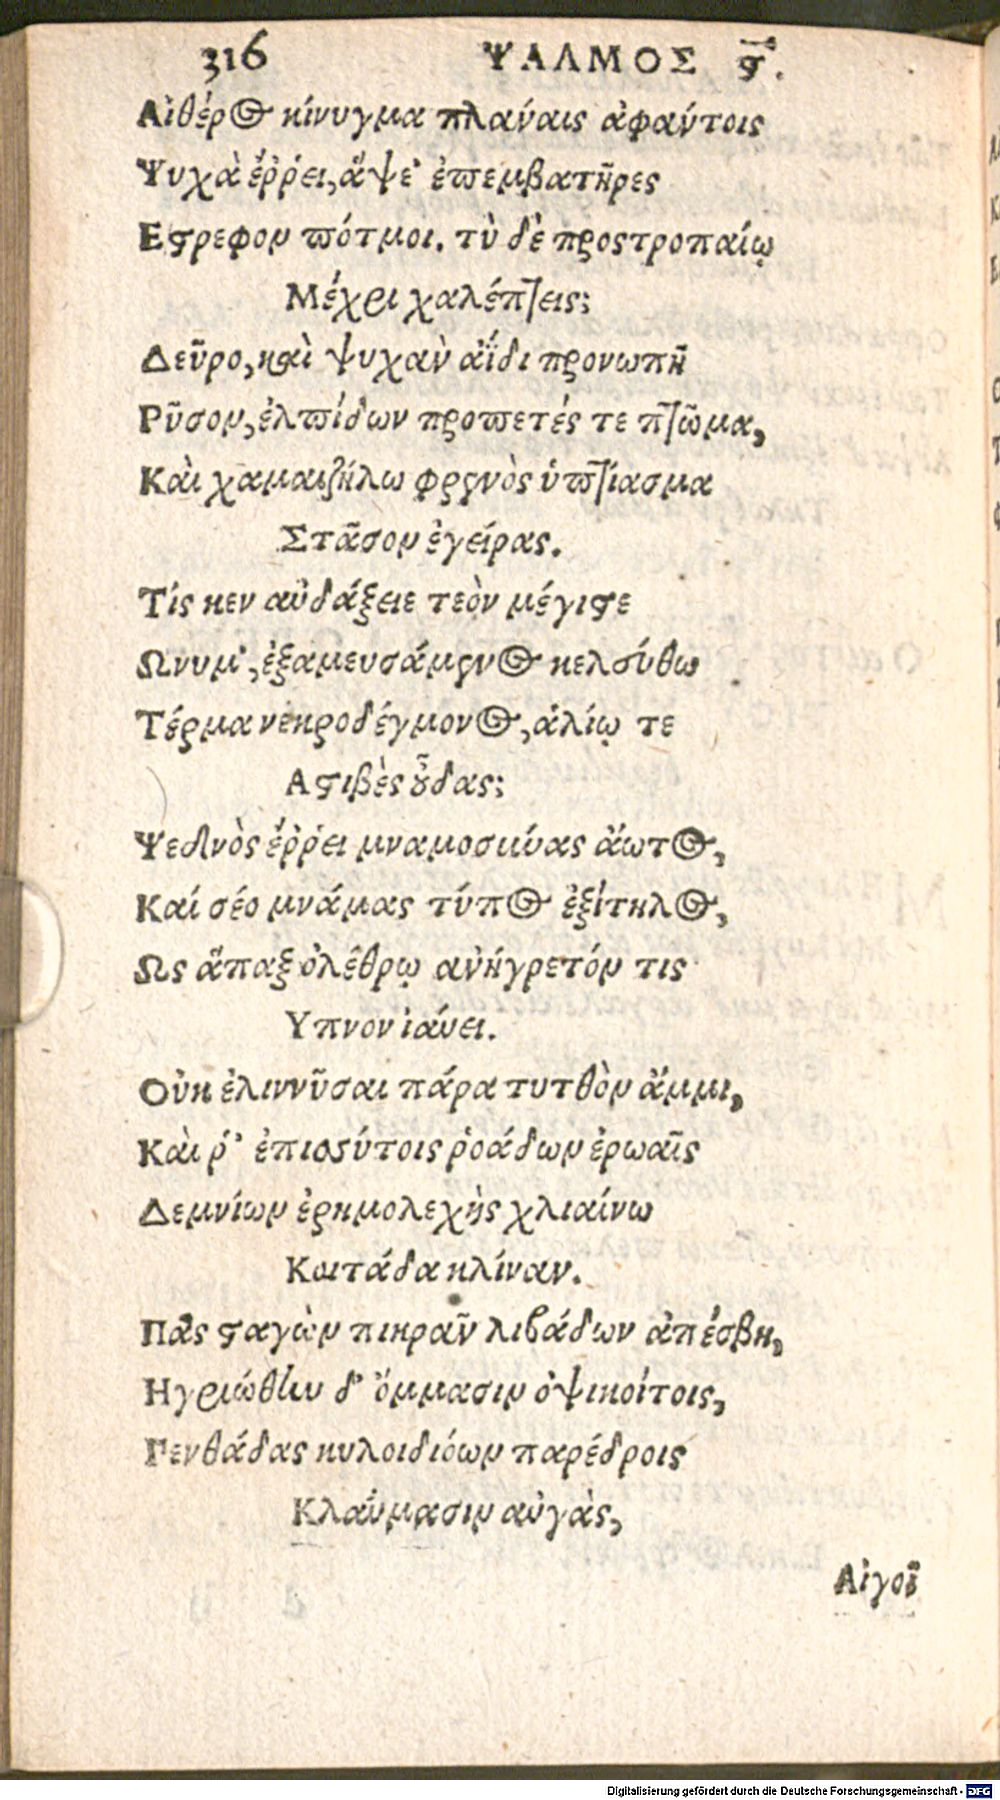 316 ΨΑΛΜΟΣ ϛ.
Αἰθέρος κίνυγμα πλαναις ἀφαύτοις
Ψυχὰ ἔῤῥει, ἅψε' ἐπεμβατῆρες
Εϛρεφον πότμοι. τὺ δὲ προςτροπαίῳ
Μέχρι χαλέπτεις;
Δεῦρο, καὶ ψυχὰν ἀΐδι προνωπῆ
Ρῦσον, ἐλπίδων προπετές τε πτῶμα,
Καὶ χαμαιζήλω φρενὸς ὑπτίασμα
Στᾶσον ἐγείρας.
Τίς κεν αὐδάξειε τεὸν μέγιϛε
Ωνυμ', ἐξαμευσάμενος κελεύθω
Τέρμα νεκροδέγμονος, ἁλίῳ τε
Αϛιβὲς οὖδας;
Ψεδνὸς ἔῤῥει μναμοσύνας ἄωτος,
Καί σέο μνάμας τύπος ἐξίτηλος,
Ως ἅπαξ ὀλέθρῳ ἀνήγρετόν τις
Υπνον ἰαύει.
Οὐκ ἐλιννῦσαι πάρα τυτθὸν ἄμμι,
Καὶ ῥ' ἐπισσύτοις ῥοάδων ἐρωαῖς
Δεμνίων ἐρημολεχὴς χλιαίνω
Κωιτάδα κλίναν.
Πᾶς ϛαγὼν πικρᾶν λιβάδων ἀπέσβη,
Ηγριώθην δ' ὄμμασιν ὀψικοίτοις,
Πενθάδας κυλοιδιόων παρέδροις
Κλαύμασιν αὐγὰς,
Αἰγοῖ
Digitalisierung gefördert durch die Deutsche Forschungsgemeinschaft - DFG